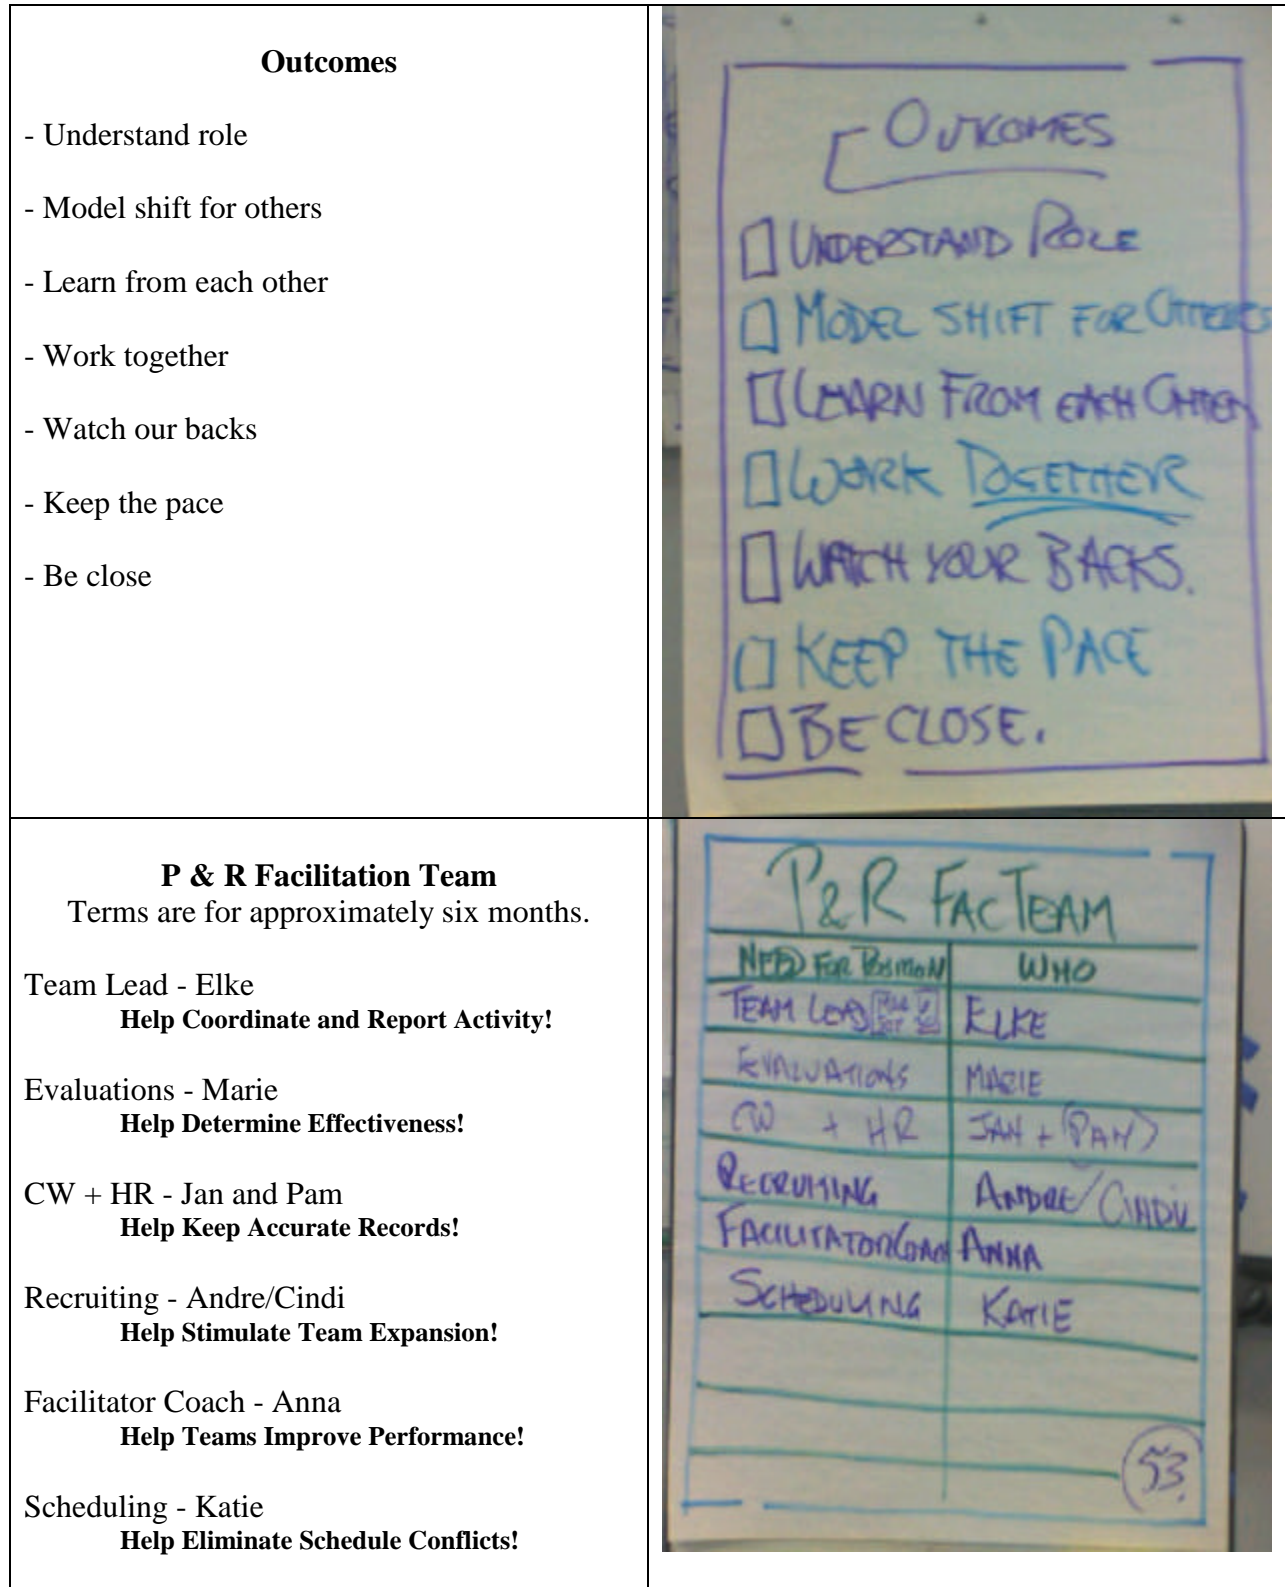 Outcomes
- Understand role
- Model shift for others
- Learn from each other
- Work together
- Watch our backs
- Keep the pace
- Be close
OUTCOMES
UNDERSTAND ROLE
MODEL SHIFT FOR OTHERS
LEARN FROM EACH OTHER
WORK TOGETHER
WATCH YOUR BACKS.
KEEP THE PACE
BE CLOSE.
P & R Facilitation Team
Terms are for approximately six months.
Team Lead - Elke
Help Coordinate and Report Activity!
Evaluations - Marie
Help Determine Effectiveness!
CW + HR - Jan and Pam
Help Keep Accurate Records!
Recruiting - Andre/Cindi
Help Stimulate Team Expansion!
Facilitator Coach - Anna
Help Teams Improve Performance!
Scheduling - Katie
Help Eliminate Schedule Conflicts!
P&R FAC TEAM
NEED FOR POSITION WHO
TEAM LEAD ELKE
EVALUATIONS MARIE
CW + HR JAN + (PAM)
RECRUITING ANDRE/CINDI
FACILITATOR COACH ANNA
SCHEDULING KATIE
53.